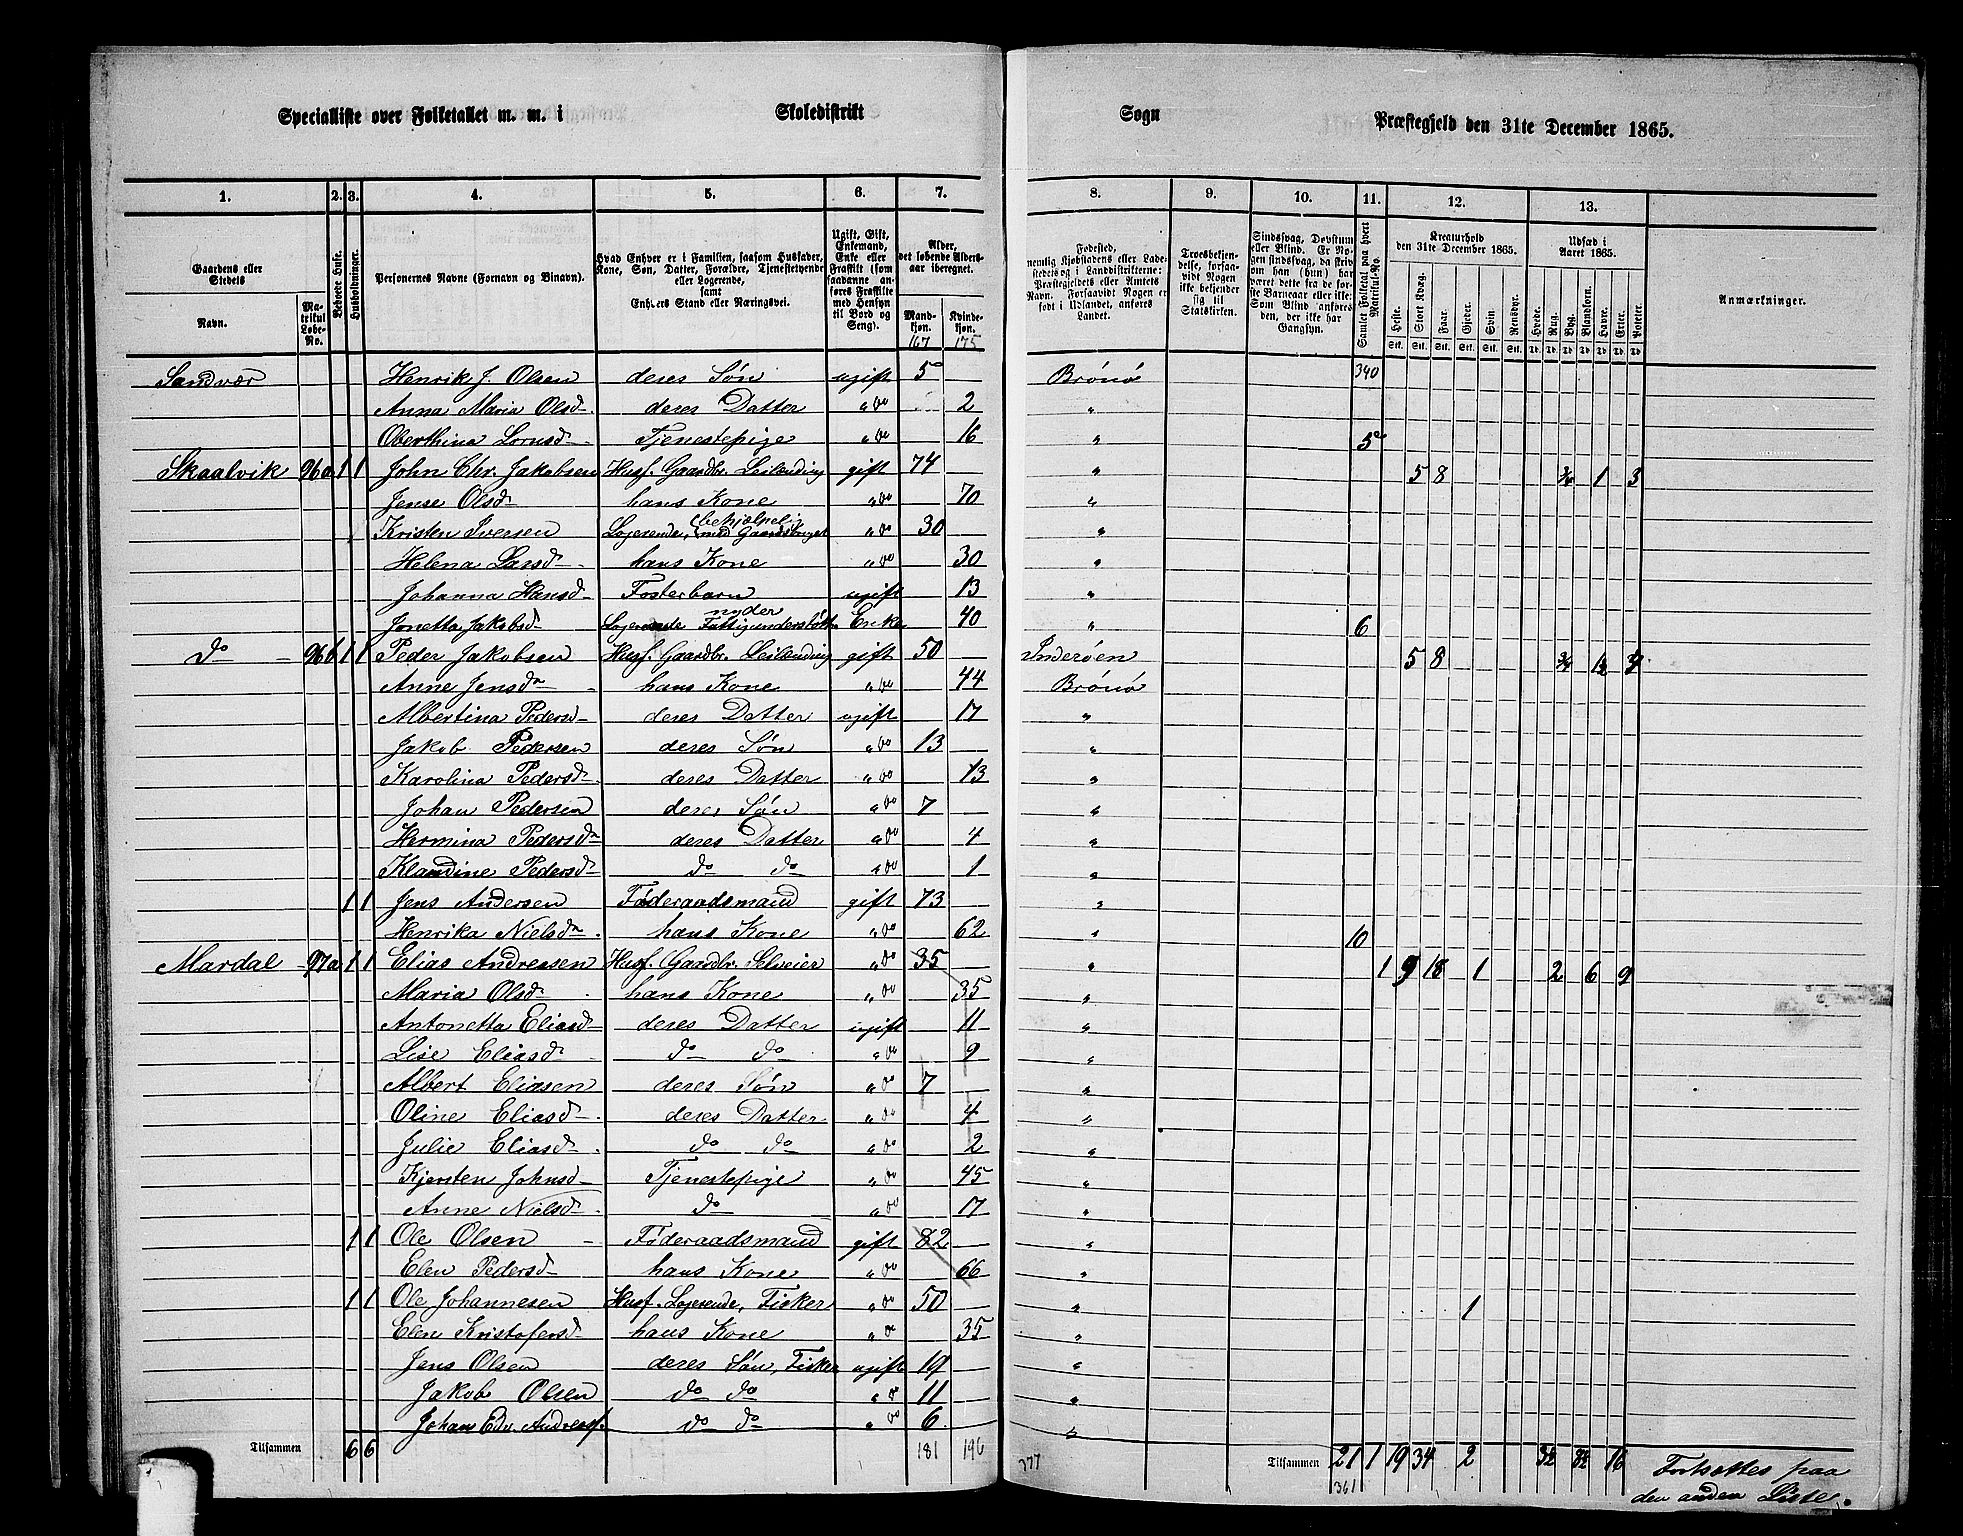 Specialliste over Folketallet m. m. i Skoledistrikt Sogn Præstegjeld den 31te December 1865.
1. 2. 3. 4. 5. 6. 7. 8. 9. 10. 11. 12. 13.
Gaardens eller Stedets Navn. Matrikul Løbe-No. Beboede Huse. Husholdninger. Personernes Navne (Fornavn og Binavn). Hvad Enhver er i Familien, saasom Husfader, Kone, Søn, Datter, Forældre, Tjenestetyende eller Logerende, samt Enhvers Stand eller Næringsvei. Ugift, Gift, Enkemand, Enke eller Fraskilt (som saadanne anføres Fraskilte med Hensyn til Bord og Seng). Alder, det løbende Aldersaar iberegnet. Mandkjøn. Kvindekjøn. Fødested, nemlig Kjøbstadens eller Ladestedets og i Landdistrikterne: Præstegjeldets eller Amtets Navn. Forsaavidt Nogen er født i Udlandet, anføres Landet. Troesbekjendelse, forsaavidt Nogen ikke bekjender sig til Statskirken. Sindssvag, Døvstum eller Blind. Er Nogen sindssvag, da skrives om han (hun) har været dette fra de første Barneaar eller ikke: Som Blind anføres den, der ikke har Gangsyn. Samlet Folketal paa hvert Matrikul-No. Kreaturhold den 31te December 1865. Udsæd i Aaret 1865. Anmærkninger.
Heste. Stort Kvæg. Faar. Gjeder. Svin. Rensdyr. Hvede. Rug. Byg. Blandkorn. Havre. Erter. Poteter.
167 175
Sandvær Henrik J. Olsen deres Søn ugift 5 Brönö 340
Anna Maria Olsd. deres Datter " do 2 "
Oberthina Lornsd. Tjenestepige " do 16 " 5
Skaalvik 96a 1 1 John Chr. Jakobsen Husf. Gaardbr. Leilending gift 74 " 5 8 3/4 1 3
Jense Olsd. hans Kone " do 70 "
Kristen Iversen Logerende, behjælpelig med Gaardsbruget " do 30 "
Helena Larsd. hans Kone " do 30 "
Johanna Hansd. Fosterbarn ugift 13 "
Jonetta Jakobsd. Logerende nyder Fattigunderstøtt. Enke 40 " 6
do 96b 1 1 Peder Jakobsen Husf. Gaardbr. Leilending gift 50 Inderöen 5 8 3/4 1½ 4
Anne Jensd. hans Kone " do 44 Brönö
Albertina Pedersd. deres Datter ugift 17 "
Jakob Pedersen deres Søn " do 13 "
Karolina Pedersd. deres Datter " do 13 "
Johan Pedersen deres Søn " do 7 "
Hermina Pedersd. deres Datter " do 4 "
Klaudine Pedersd. do do " do 1 "
1 1 Jens Andersen Føderaadsmand gift 73 "
Henrika Nielsd. hans Kone " do 62 " 10
Mardal 97a 1 1 Elias Andreasen Husf. Gaardbr. Selveier " do 35 " 1 9 18 1 2 6 9
Maria Olsd. hans Kone " do 35 "
Antonetta Eliasd. deres Datter ugift 11 "
Lise Eliasd. do do " do 9 "
Albert Eliasen deres Søn " do 7 "
Oline Eliasd. deres Datter " do 4 "
Julie Eliasd. do do " do 2 "
Kjersten Johnsd. Tjenestepige " do 45 "
Anne Nielsd. do " do 17 "
1 1 Ole Olsen Føderaadsmand gift 82 "
Elen Pedersd. hans Kone " do 66 "
1 1 Ole Johannesen Husf. Logerende, Fisker " do 50 " 1
Elen Kristofersd. hans Kone " do 35 "
Jens Olsen deres Søn, Fisker ugift 19 "
Jakob Olsen do do " do 11 "
Johan Edv. Andreass. do do " do 6 "
Tilsammen 6 6 181 196 377 Tilsammen 21 1 19 34 2 3½ 8½ 16 Fortsættes paa
361 den anden Liste.